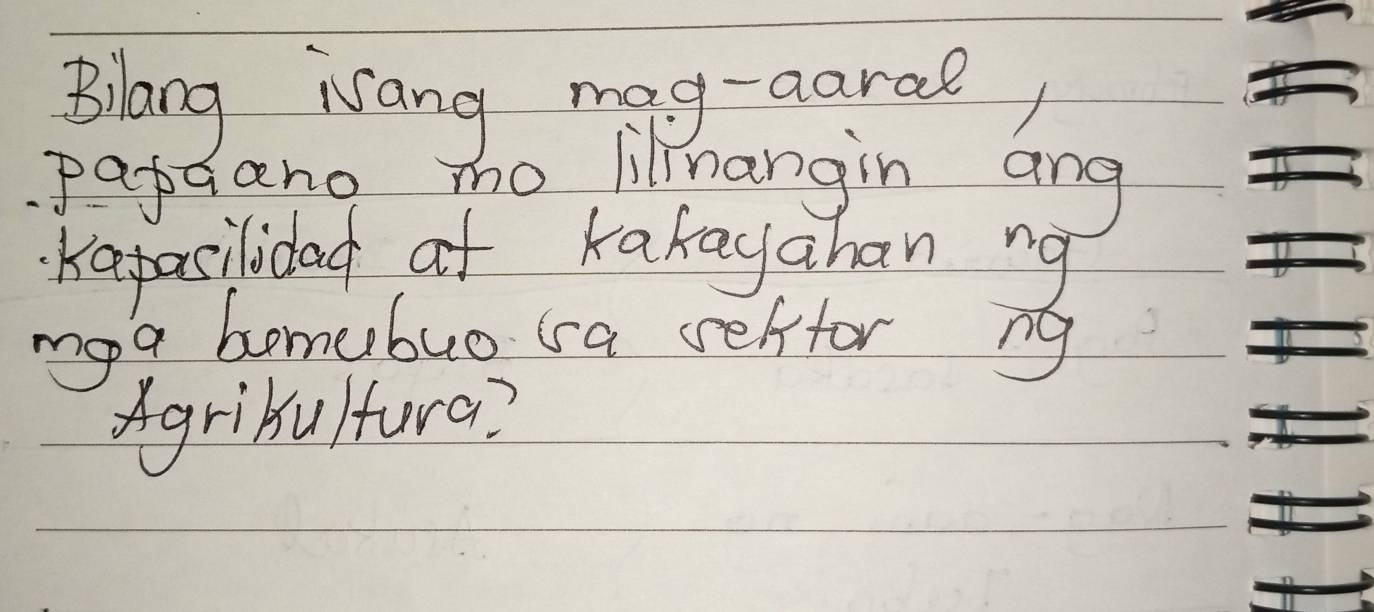 Bilang isang mag-aaral,
papaano mo lilinangin ang
kapasilidad at kakayahan ng
mga bumubuo sa sektor ng
Agrikultura?